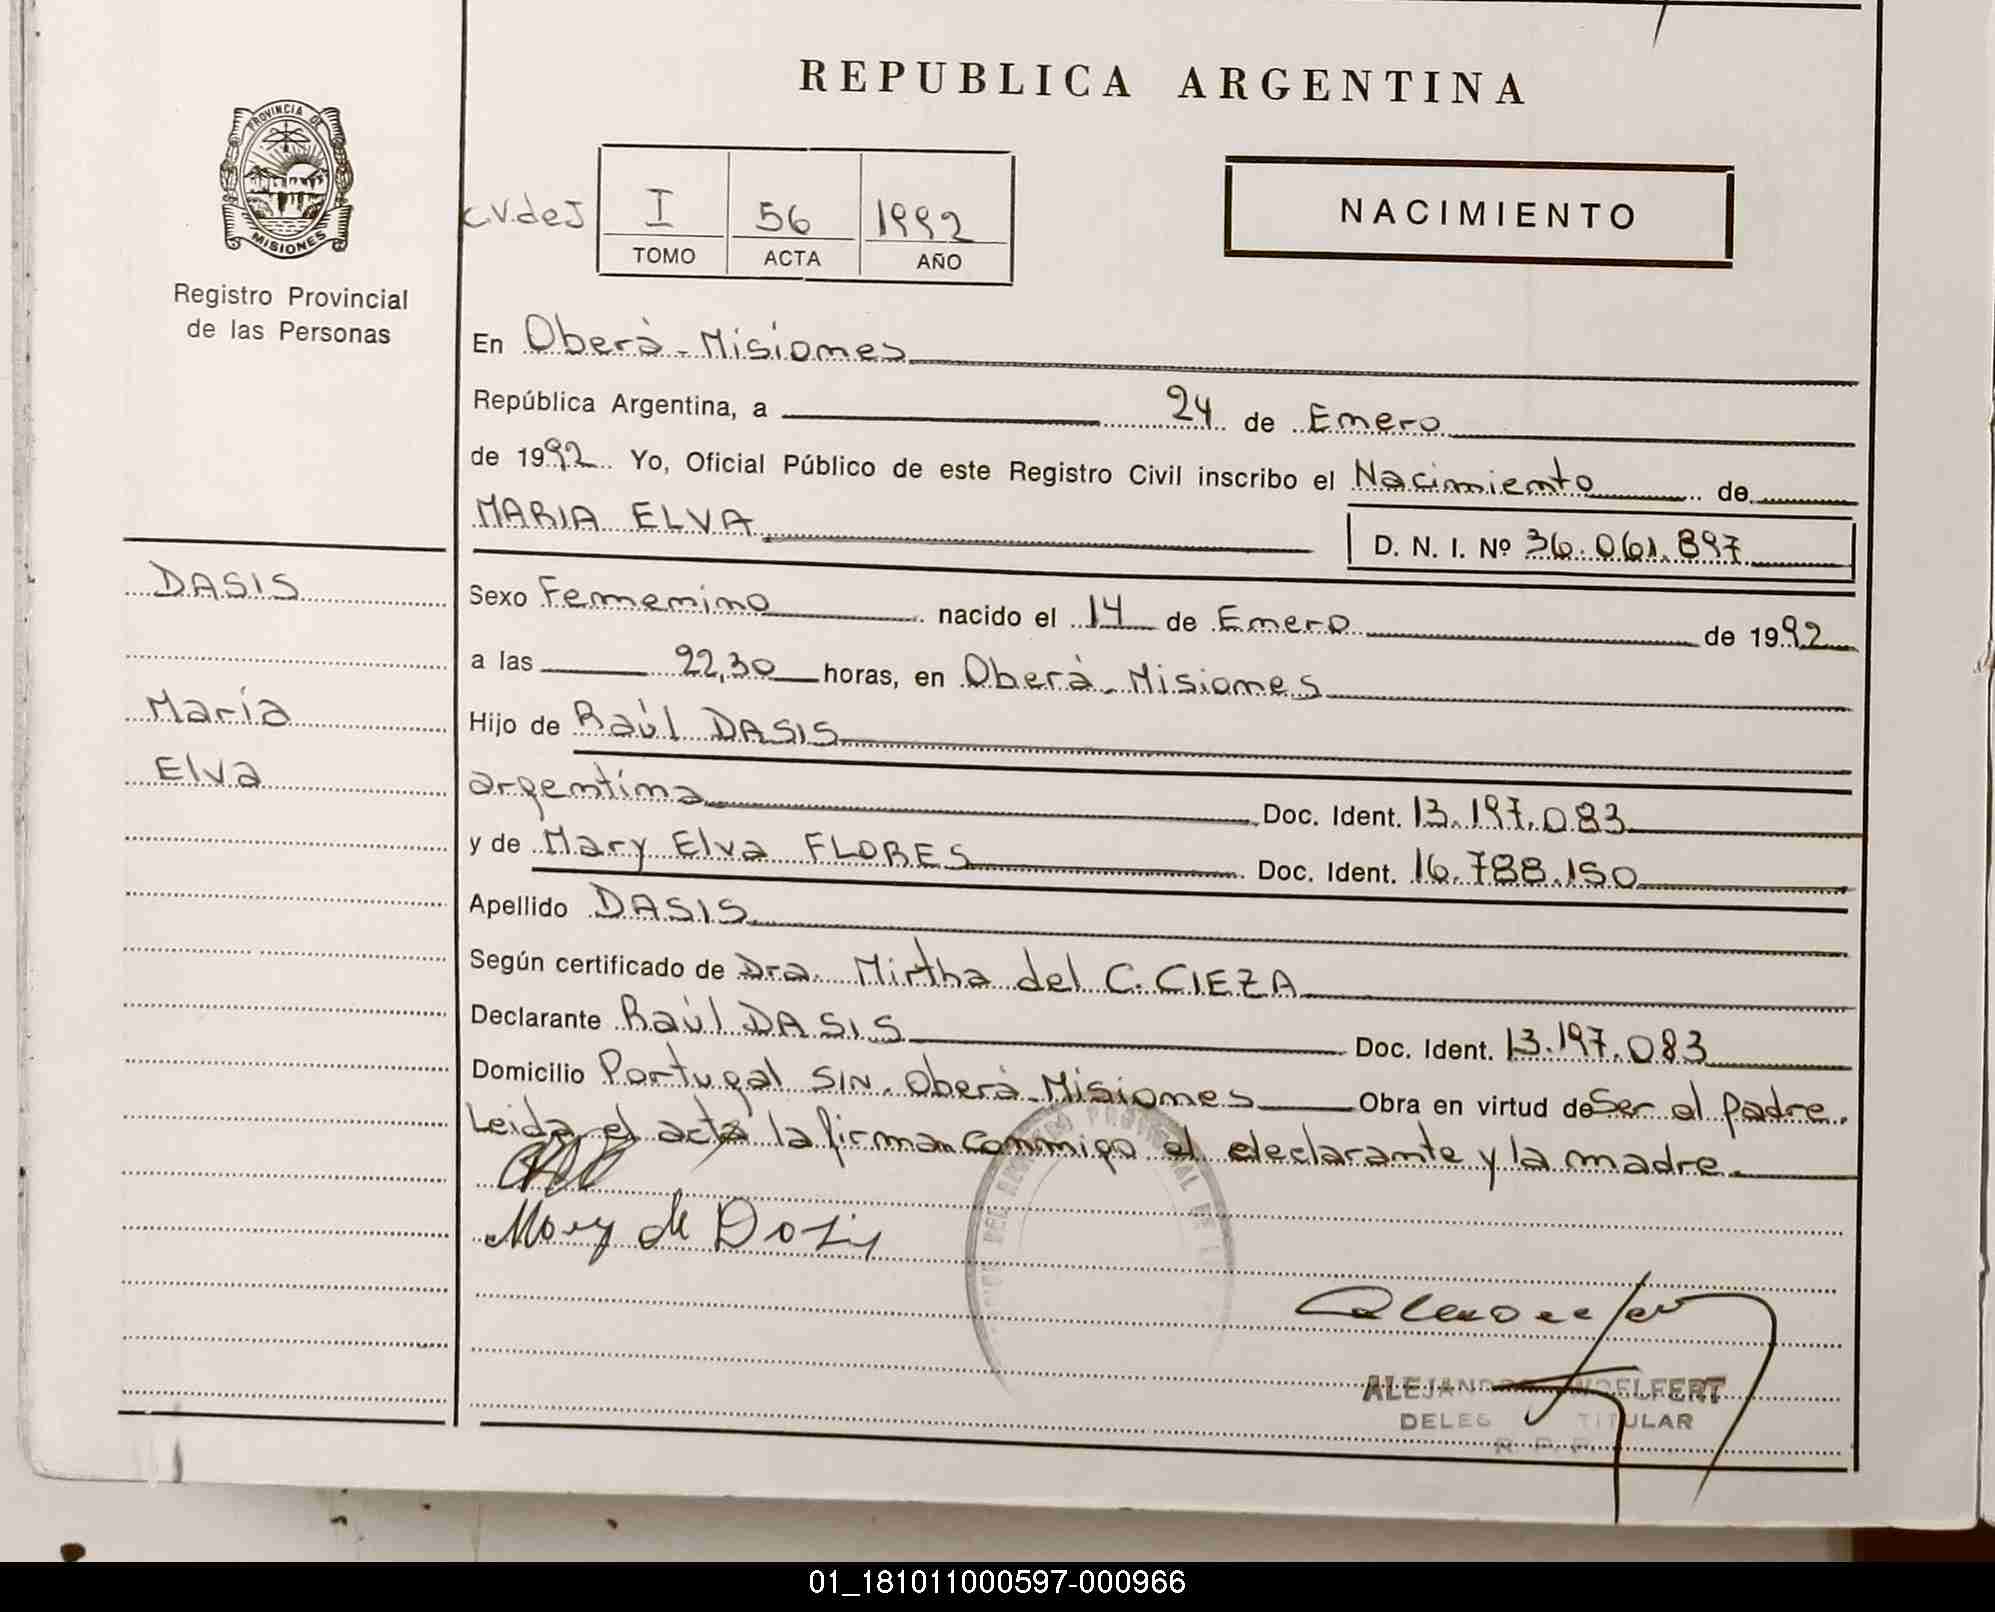 REPUBLICA ARGENTINA
PROVINCIA DE
MISIONES
Registro Provincial
de las Personas
C.V.deJ
I 56 1992
TOMO ACTA AÑO
NACIMIENTO
En Oberá - Misiones
República Argentina, a 24 de Enero
de 1992 Yo, Oficial Público de este Registro Civil inscribo el Nacimiento de
MARIA ELVA
D. N. I. Nº 36.061.897
DASIS
María
Elva
Sexo Femenino nacido el 14 de Enero de 1992
a las 22,30 horas, en Oberá - Misiones
Hijo de Raúl DASIS
argentina Doc. Ident. 13.197.083
y de Mary Elva FLORES Doc. Ident. 16.788.150
Apellido DASIS
Según certificado de Dra. Mirtha del C. CIEZA
Declarante Raúl DASIS Doc. Ident. 13.197.083
Domicilio Portugal S/N. Oberá - Misiones Obra en virtud de Ser el padre.
Leida el acta la firman conmigo el declarante y la madre.
Mary de Dasis
ALEJANDRO WOELFERT
TITULAR
R. P. P.
01_181011000597-000966